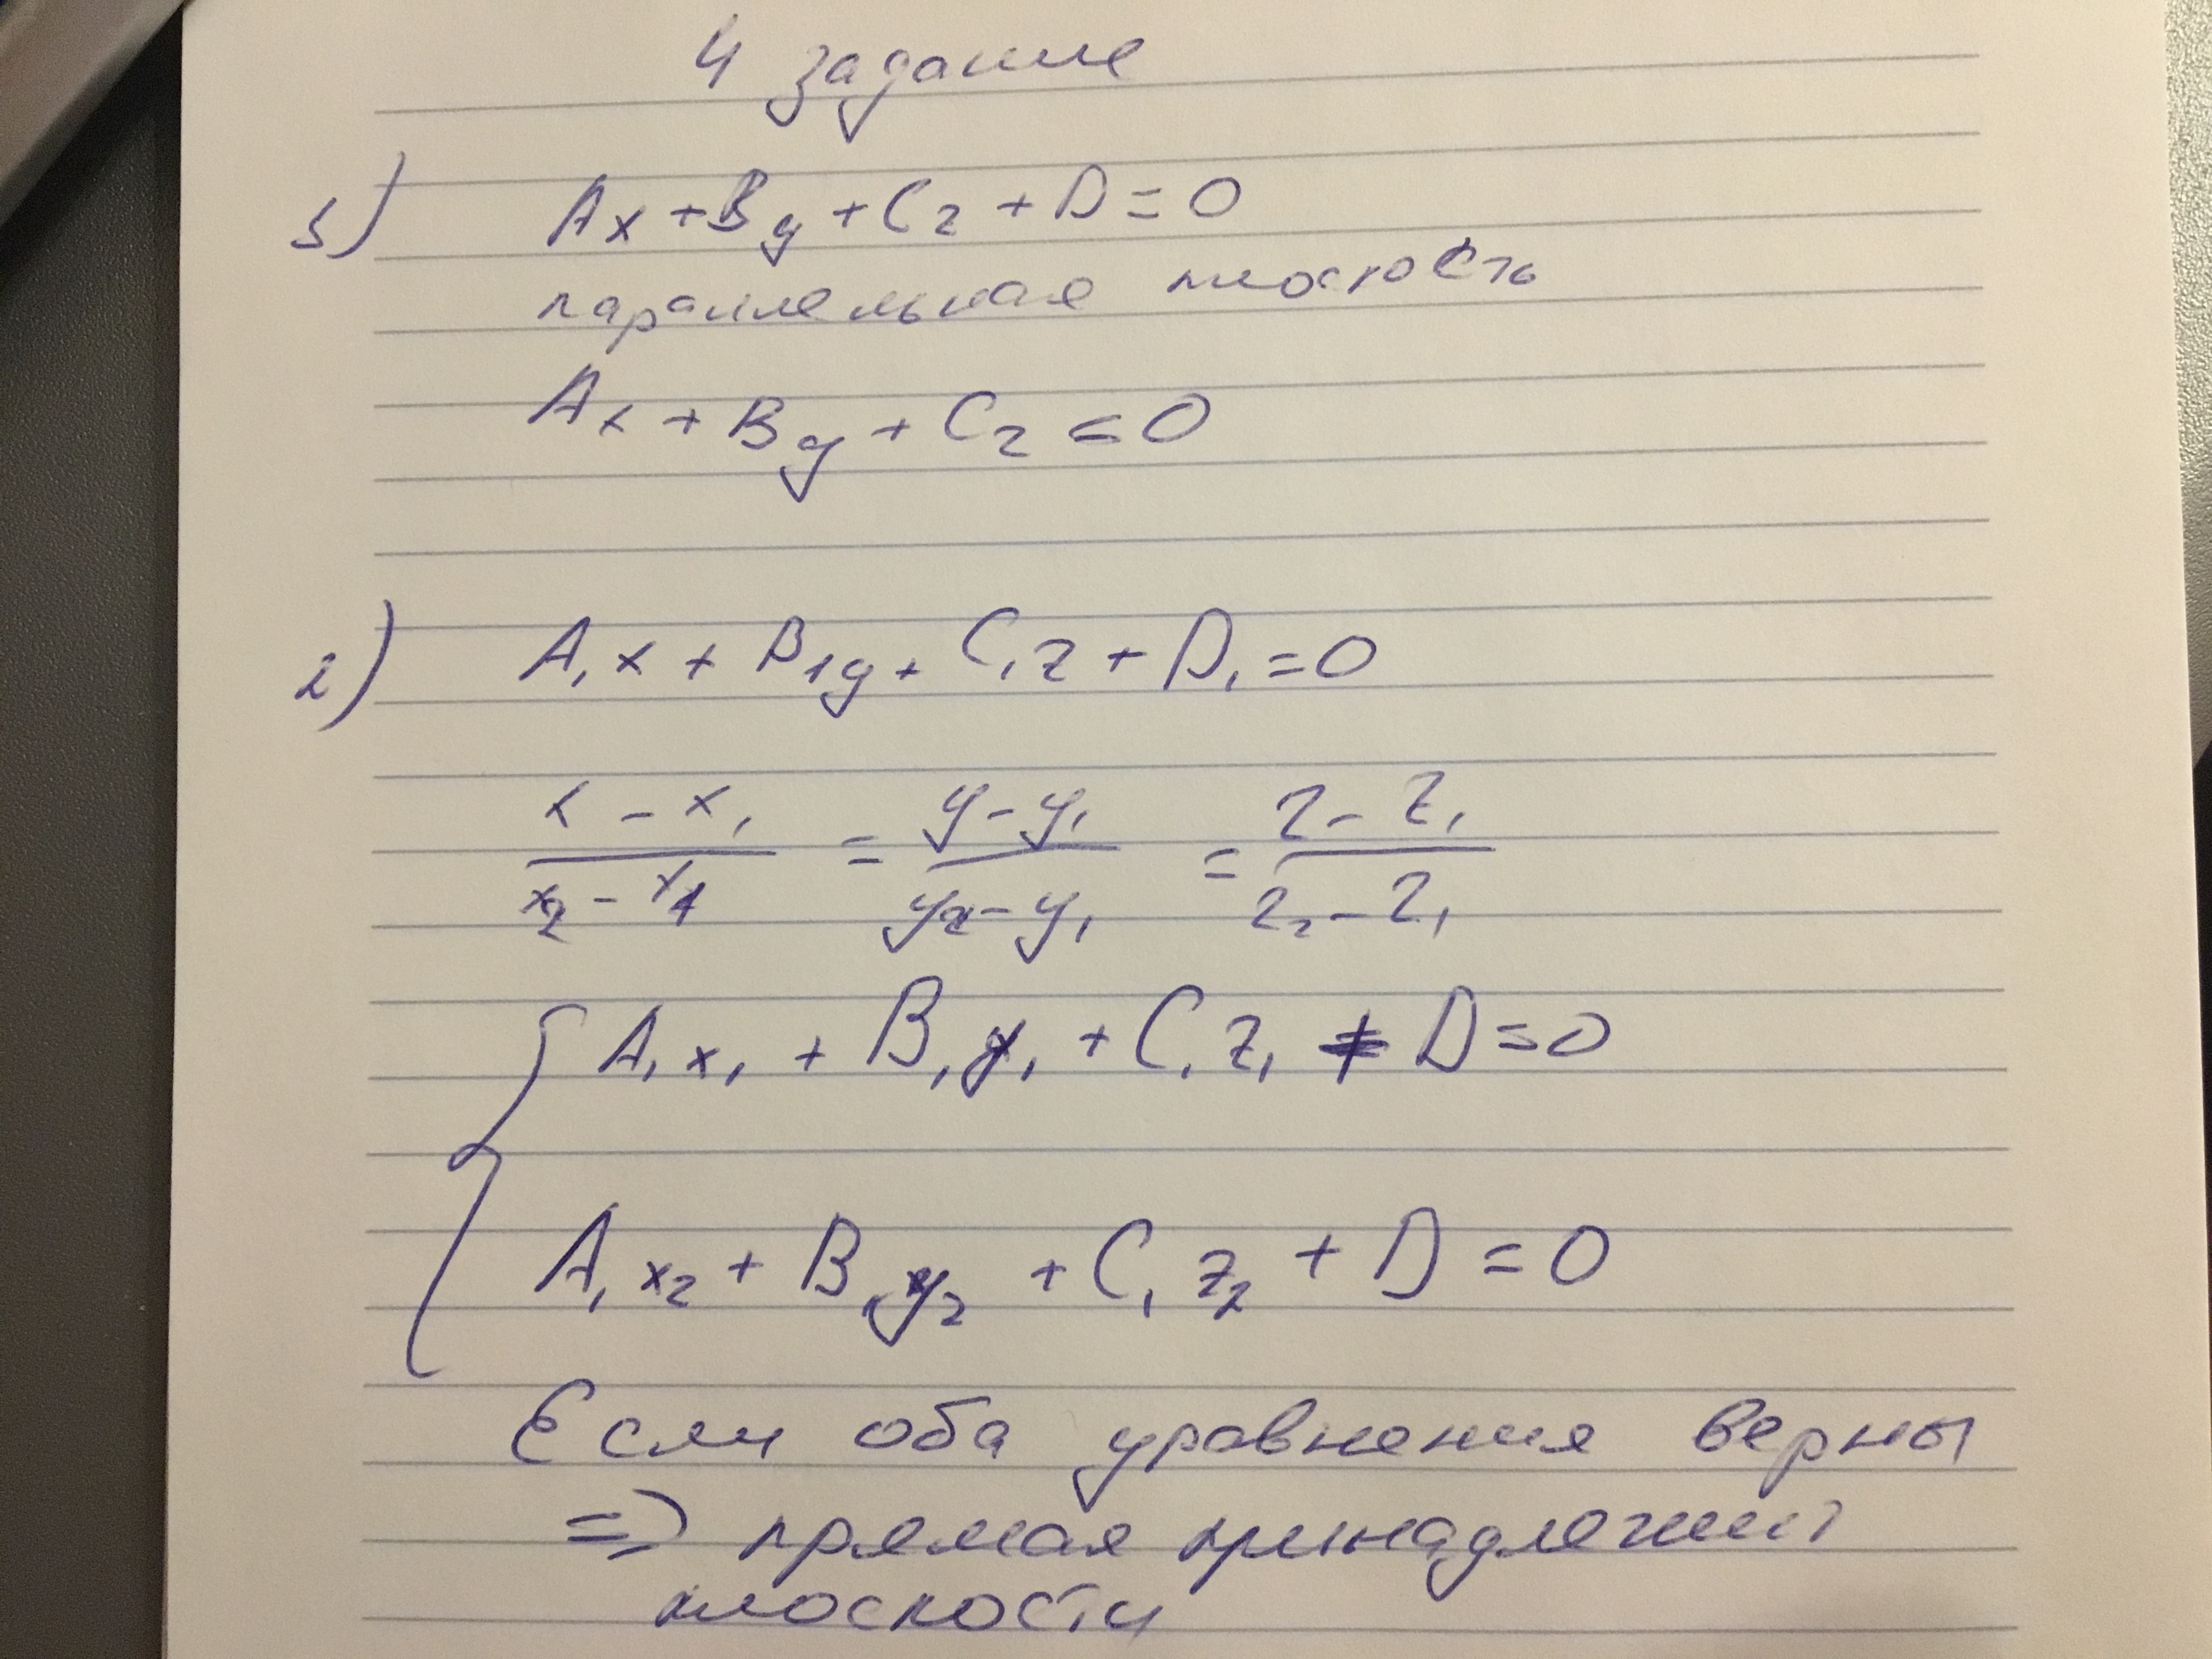 4 задание
5) Ax + By + Cz + D = 0
параллельная плоскость
Ax + By + Cz = 0
2) A₁x + B₁y + C₁z + D₁ = 0
(x - x₁)/(x₂ - x₁) = (y - y₁)/(y₂ - y₁) = (z - z₁)/(z₂ - z₁)
{ A₁x₁ + B₁y₁ + C₁z₁ + D = 0
A₁x₂ + B₁y₂ + C₁z₂ + D = 0
Если оба уравнения верны
=> прямая принадлежит
плоскости